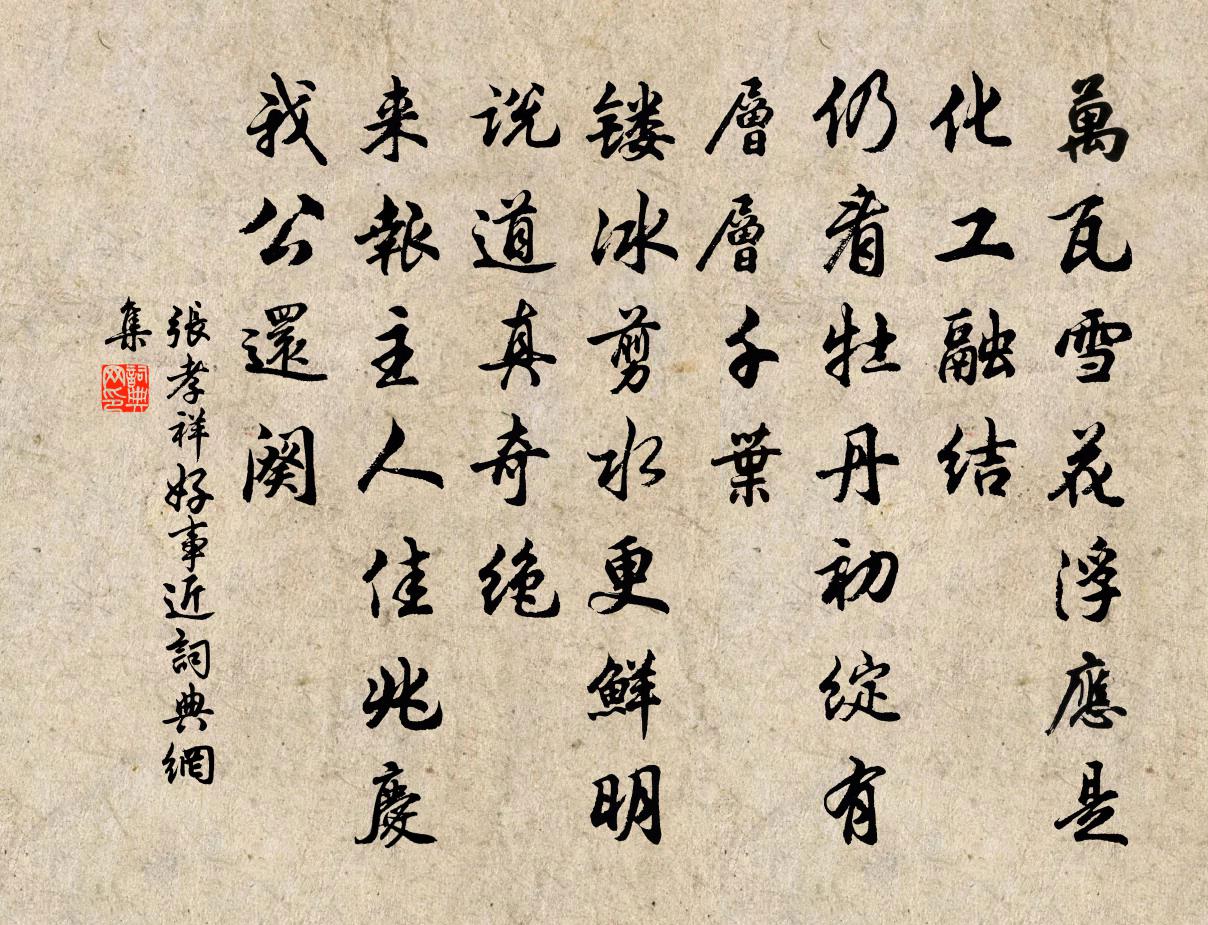 萬瓦雪花浮應是
化工融结
仍看牡丹初綻有
層層千葉
镂冰剪水更鮮明
说道真奇绝
来報主人佳兆慶
我公還阕
張孝祥好事近詞典網
集
詞典網印